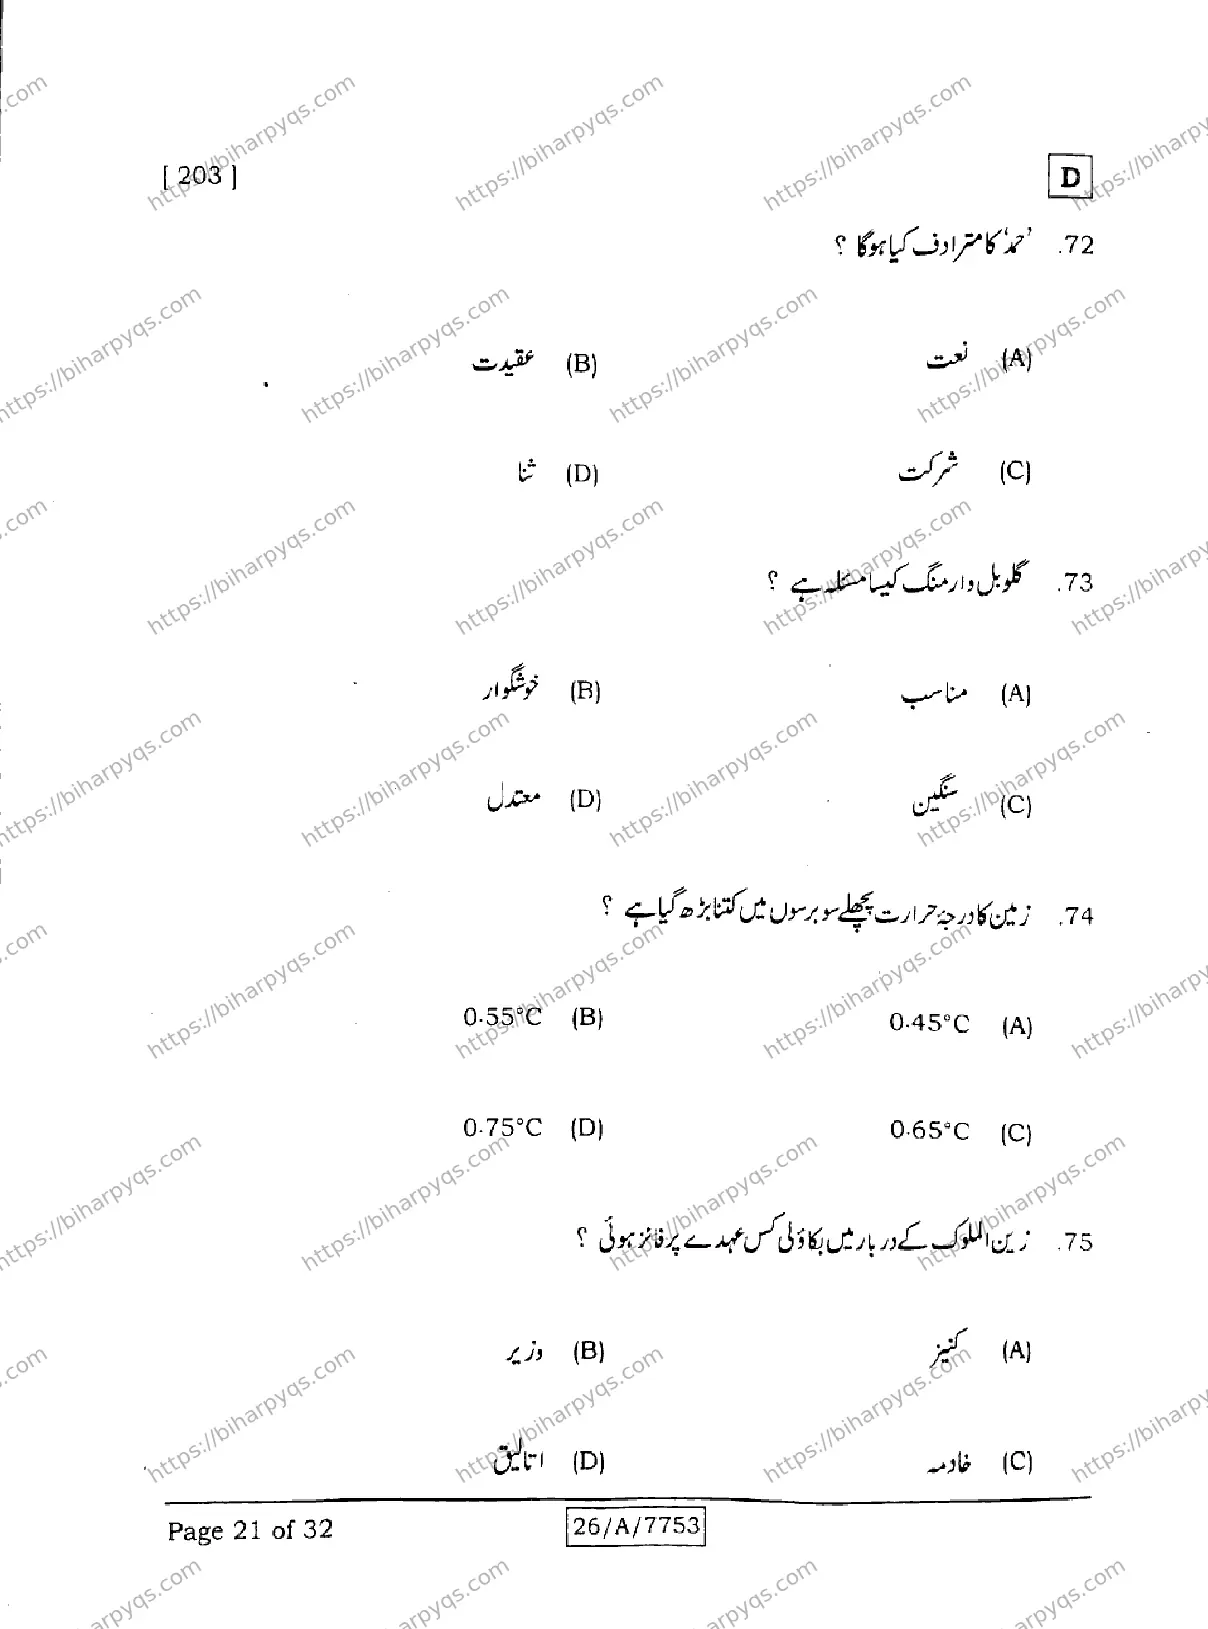 [ 203 ]
D
72. ’حمد‘ کا مترادف کیا ہوگا ؟
(A) نعت
(B) عقیدت
(C) شرکت
(D) ثنا
73. گلوبل وارمنگ کیسا مسئلہ ہے ؟
(A) مناسب
(B) خوشگوار
(C) سنگین
(D) معتدل
74. زمین کا درجۂ حرارت پچھلے سو برسوں میں کتنا بڑھ گیا ہے ؟
(A) 0·45°C
(B) 0·55°C
(C) 0·65°C
(D) 0·75°C
75. زین الملوک کے دربار میں بکاؤلی کس عہدے پر فائز ہوئی ؟
(A) کنیز
(B) وزیر
(C) خادمہ
(D) اتالیق
Page 21 of 32
26/A/7753
https://biharpyqs.com